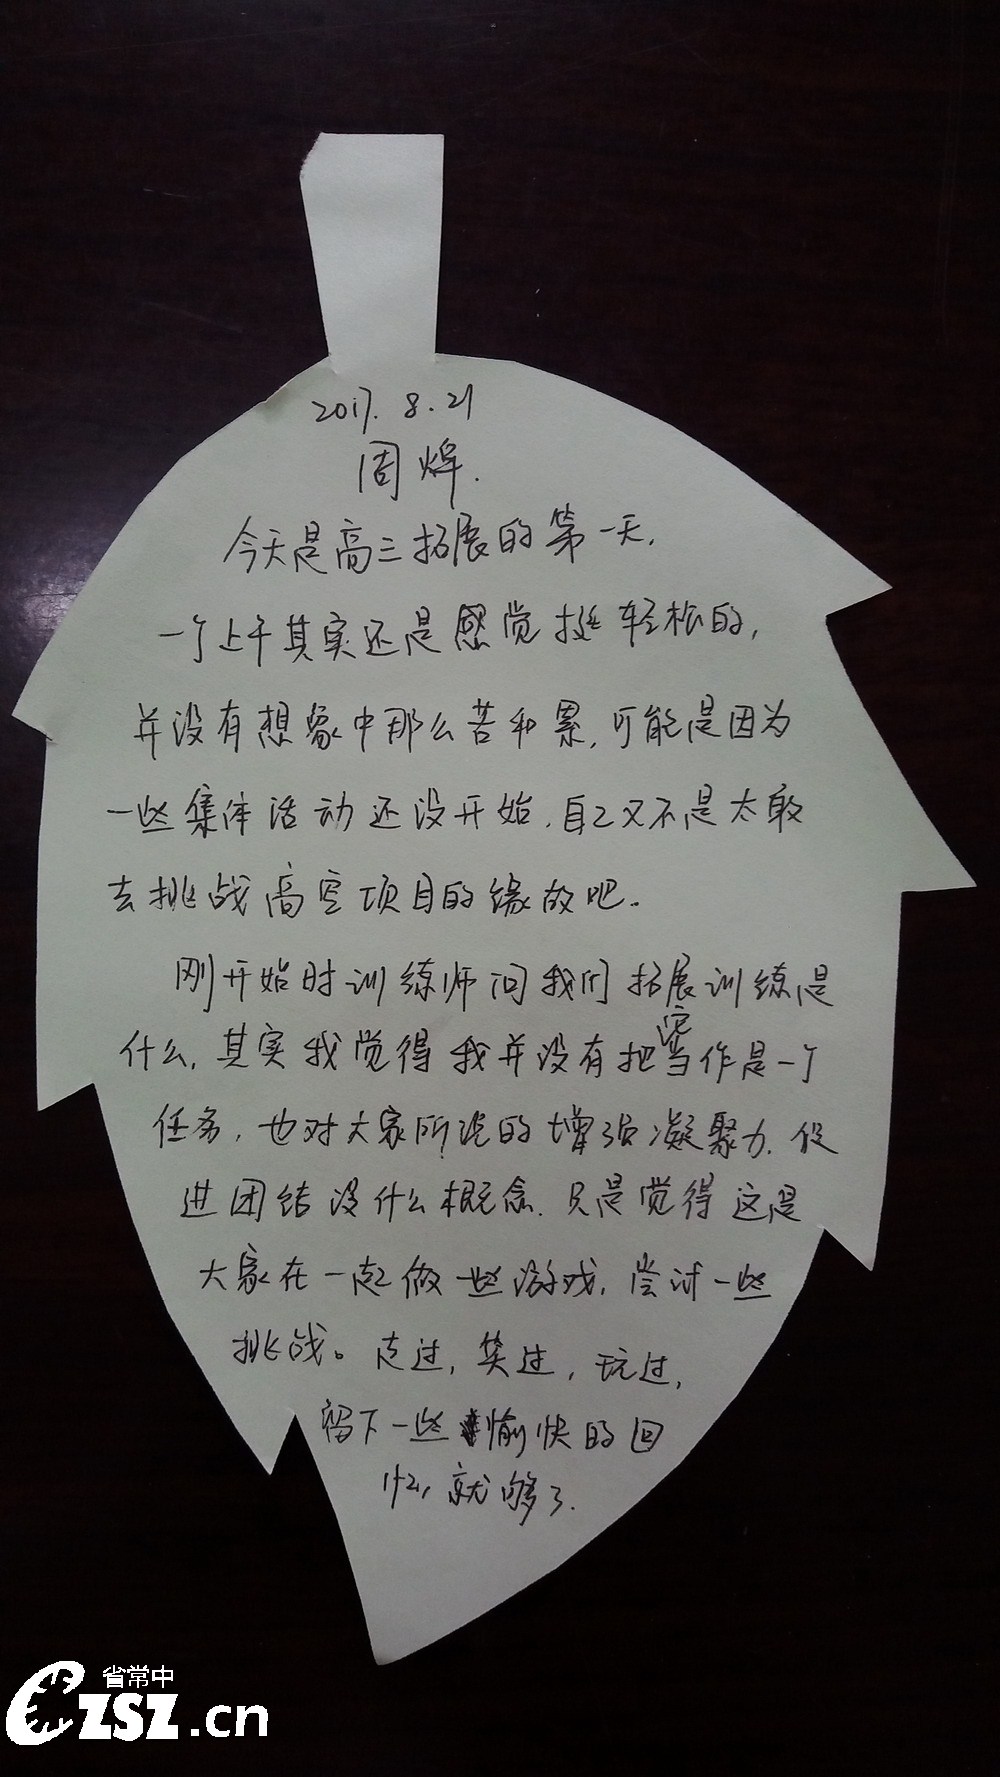 2017.8.21
周焯.
今天是高三拓展的第一天,
一个上午其实还是感觉挺轻松的,
并没有想象中那么苦和累,可能是因为
一些集体活动还没开始,自己又不是太敢
去挑战高空项目的缘故吧。
刚开始时训练师问我们拓展训练是
什么,其实我觉得我并没有把它当作是一个
任务,也对大家所说的增强凝聚力,促
进团结没什么概念.只是觉得这是
大家在一起做一些游戏,尝试一些
挑战。走过,笑过,玩过,
留下一些愉快的回
忆,就够了.
省常中
CZSZ.cn